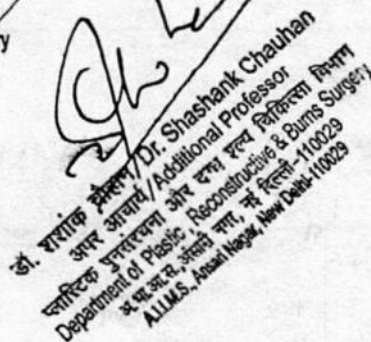 डॉ. शशांक चौहान/Dr. Shashank Chauhan
अपर आचार्य/Additional Professor
प्लास्टिक पुनरचना और दग्ध शल्य चिकित्सा विभाग
Department of Plastic, Reconstructive & Burns Surgery
अ.भा.आ.सं., अंसारी नगर, नई दिल्ली-110029
A.I.I.M.S., Ansari Nagar, New Delhi-110029